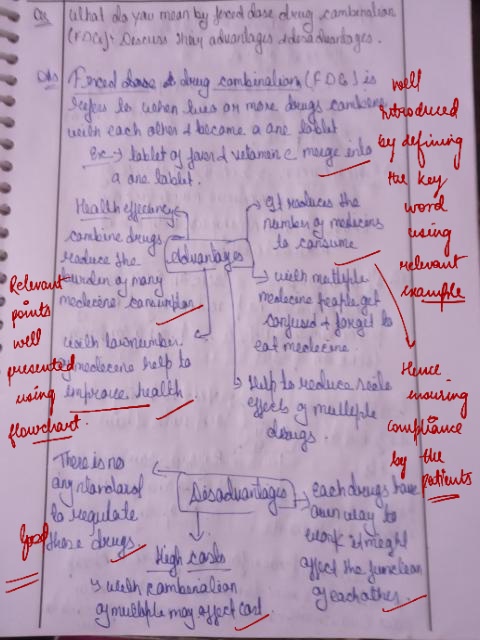 Q. What do you mean by forced dose drug combination
(FDCs)? Discuss their advantages & disadvantages.
Ans Forced dose & drug combination (FDC) is
refers to when two or more drugs combine
with each other & become a one tablet
Ex:→ tablet of fever & vetamin c merge into
a one tablet.
well
introduced
by defining
the key
word
using
relevant
example
Advantages
Health effeciency
combine drugs
reduce the
burden of many
medecine consumption
with low number
of medecine help to
improve health
It reduces the
number of medecins
to consume
with multiple
medecine people get
confused & forget to
eat medecine.
Help to reduce side
effects of multiple
drugs.
Relevant
points
well
presented
using
flowchart.
Hence
insuring
compliance
by the
patients
Disadvantages
There is no
any standard
to regulate
these drugs
High costs
with combination
of multiple may affect cost
each drugs have
own way to
work it might
affect the function
of each other
Good